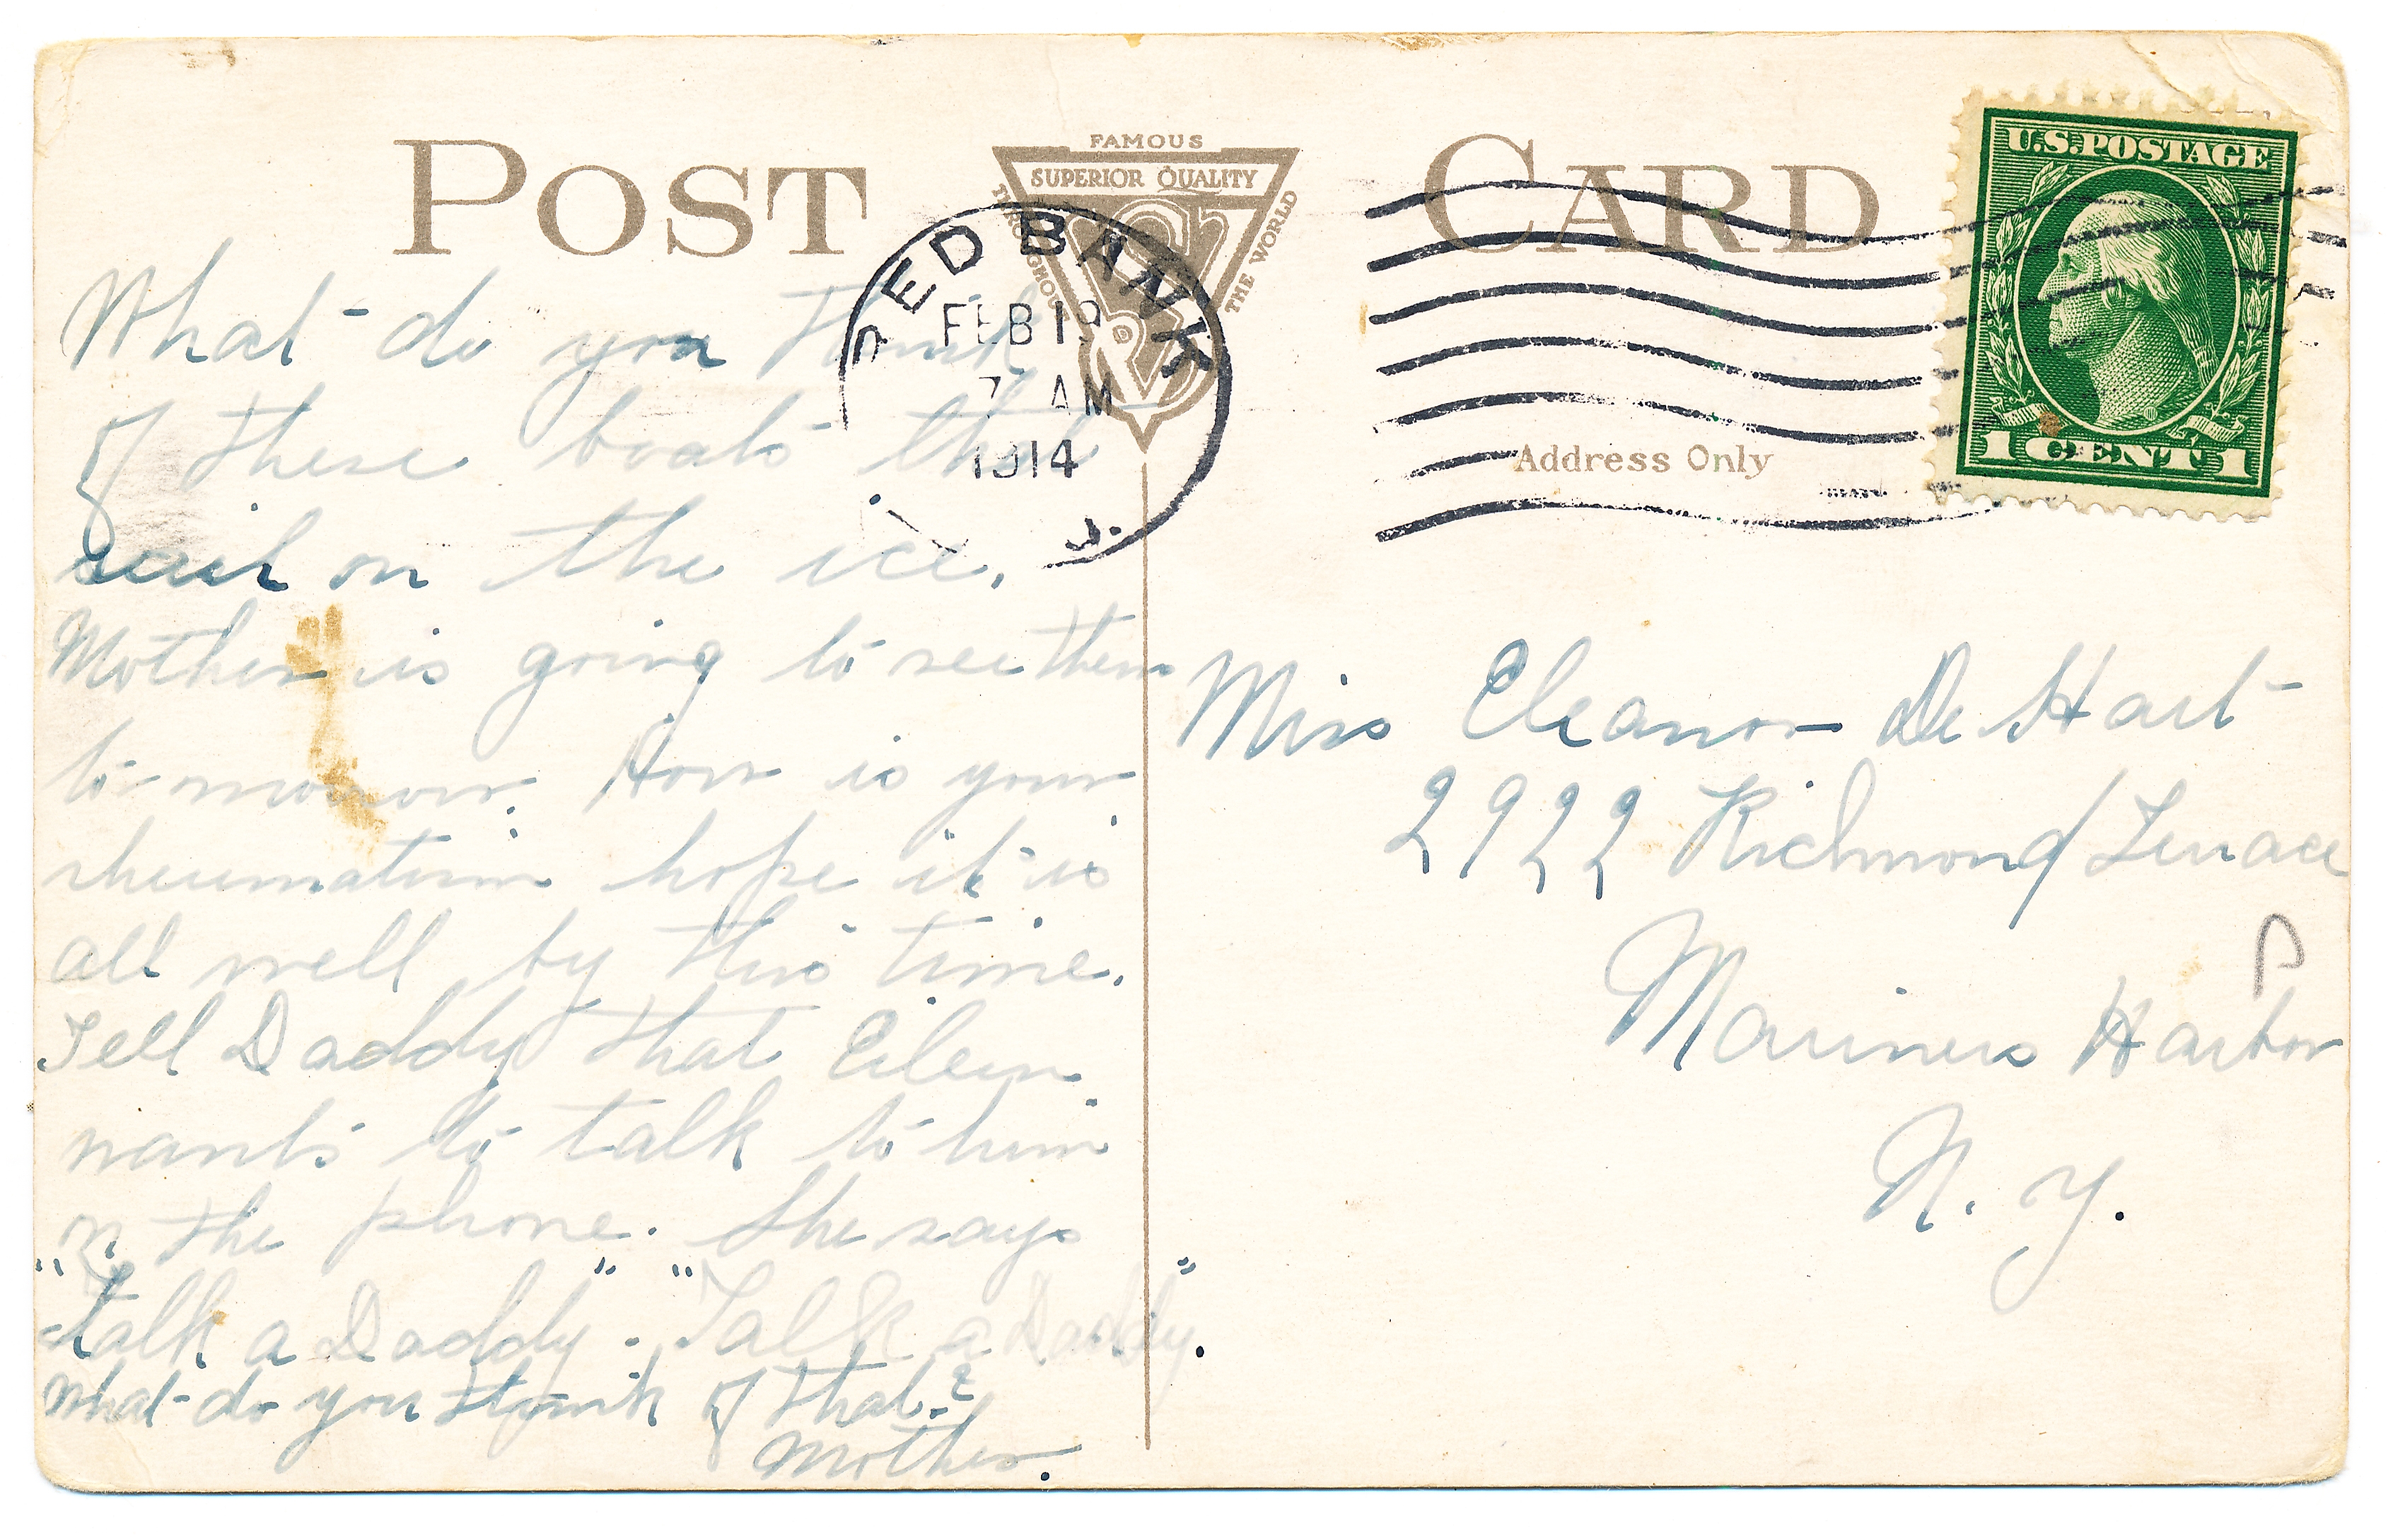 POST CARD
FAMOUS
SUPERIOR QUALITY
THROUGHOUT
THE WORLD
RED BANK
FEB 19
7 AM
1914
J.
U.S. POSTAGE
1 CENT 1
Address Only
What do you think
of these boats that
sail on the ice.
Mother is going to see them
to-morrow. How is your
rheumatism hope it is
all well by this time.
Tell Daddy that Eileen
wants to talk to him
on the phone. She says
"Talk a Daddy". "Talk a Daddy".
What do you think of that?
Mother.
Miss Eleanor De Hart
2922 Richmond Terrace
Mariners Harbor
N. Y.